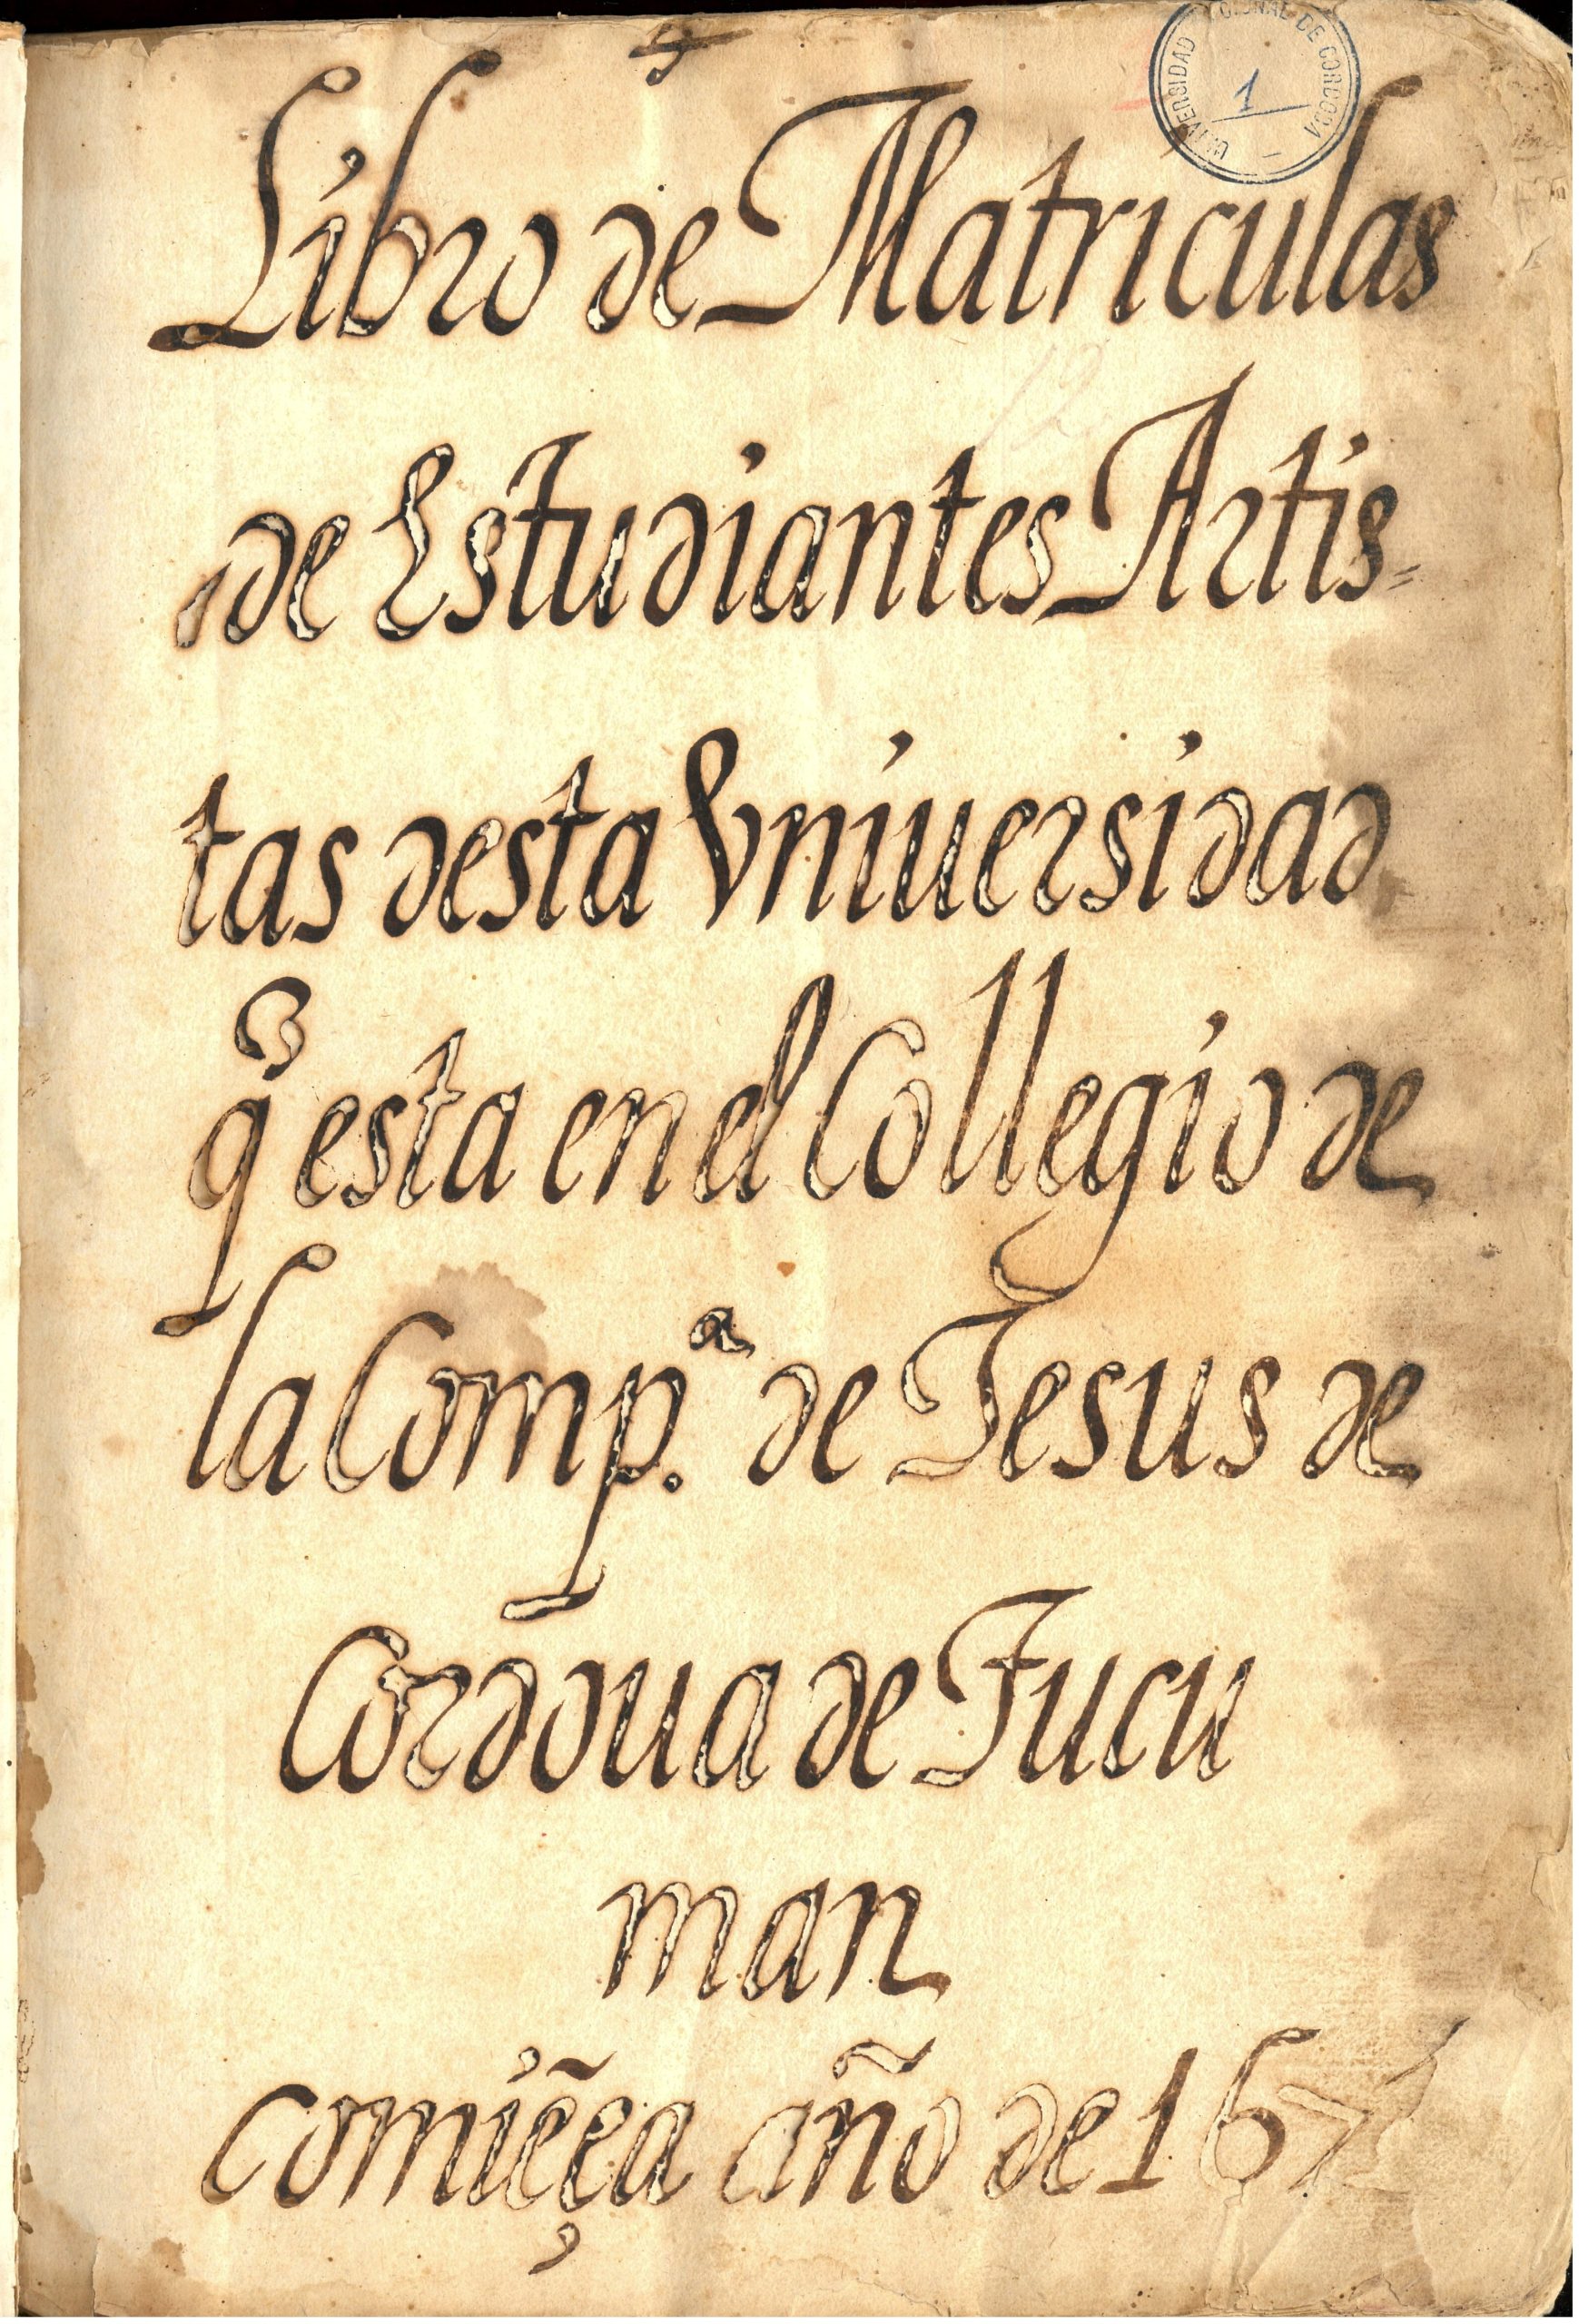 UNIVERSIDAD NACIONAL DE CORDOBA
1
Libro de Matriculas
de Estudiantes Artis=
tas desta Vniuersidad
q̃ esta en el Collegio de
la Comp.ª de Jesus de
Cordoua de Tucu
man
comiẽça año de 167